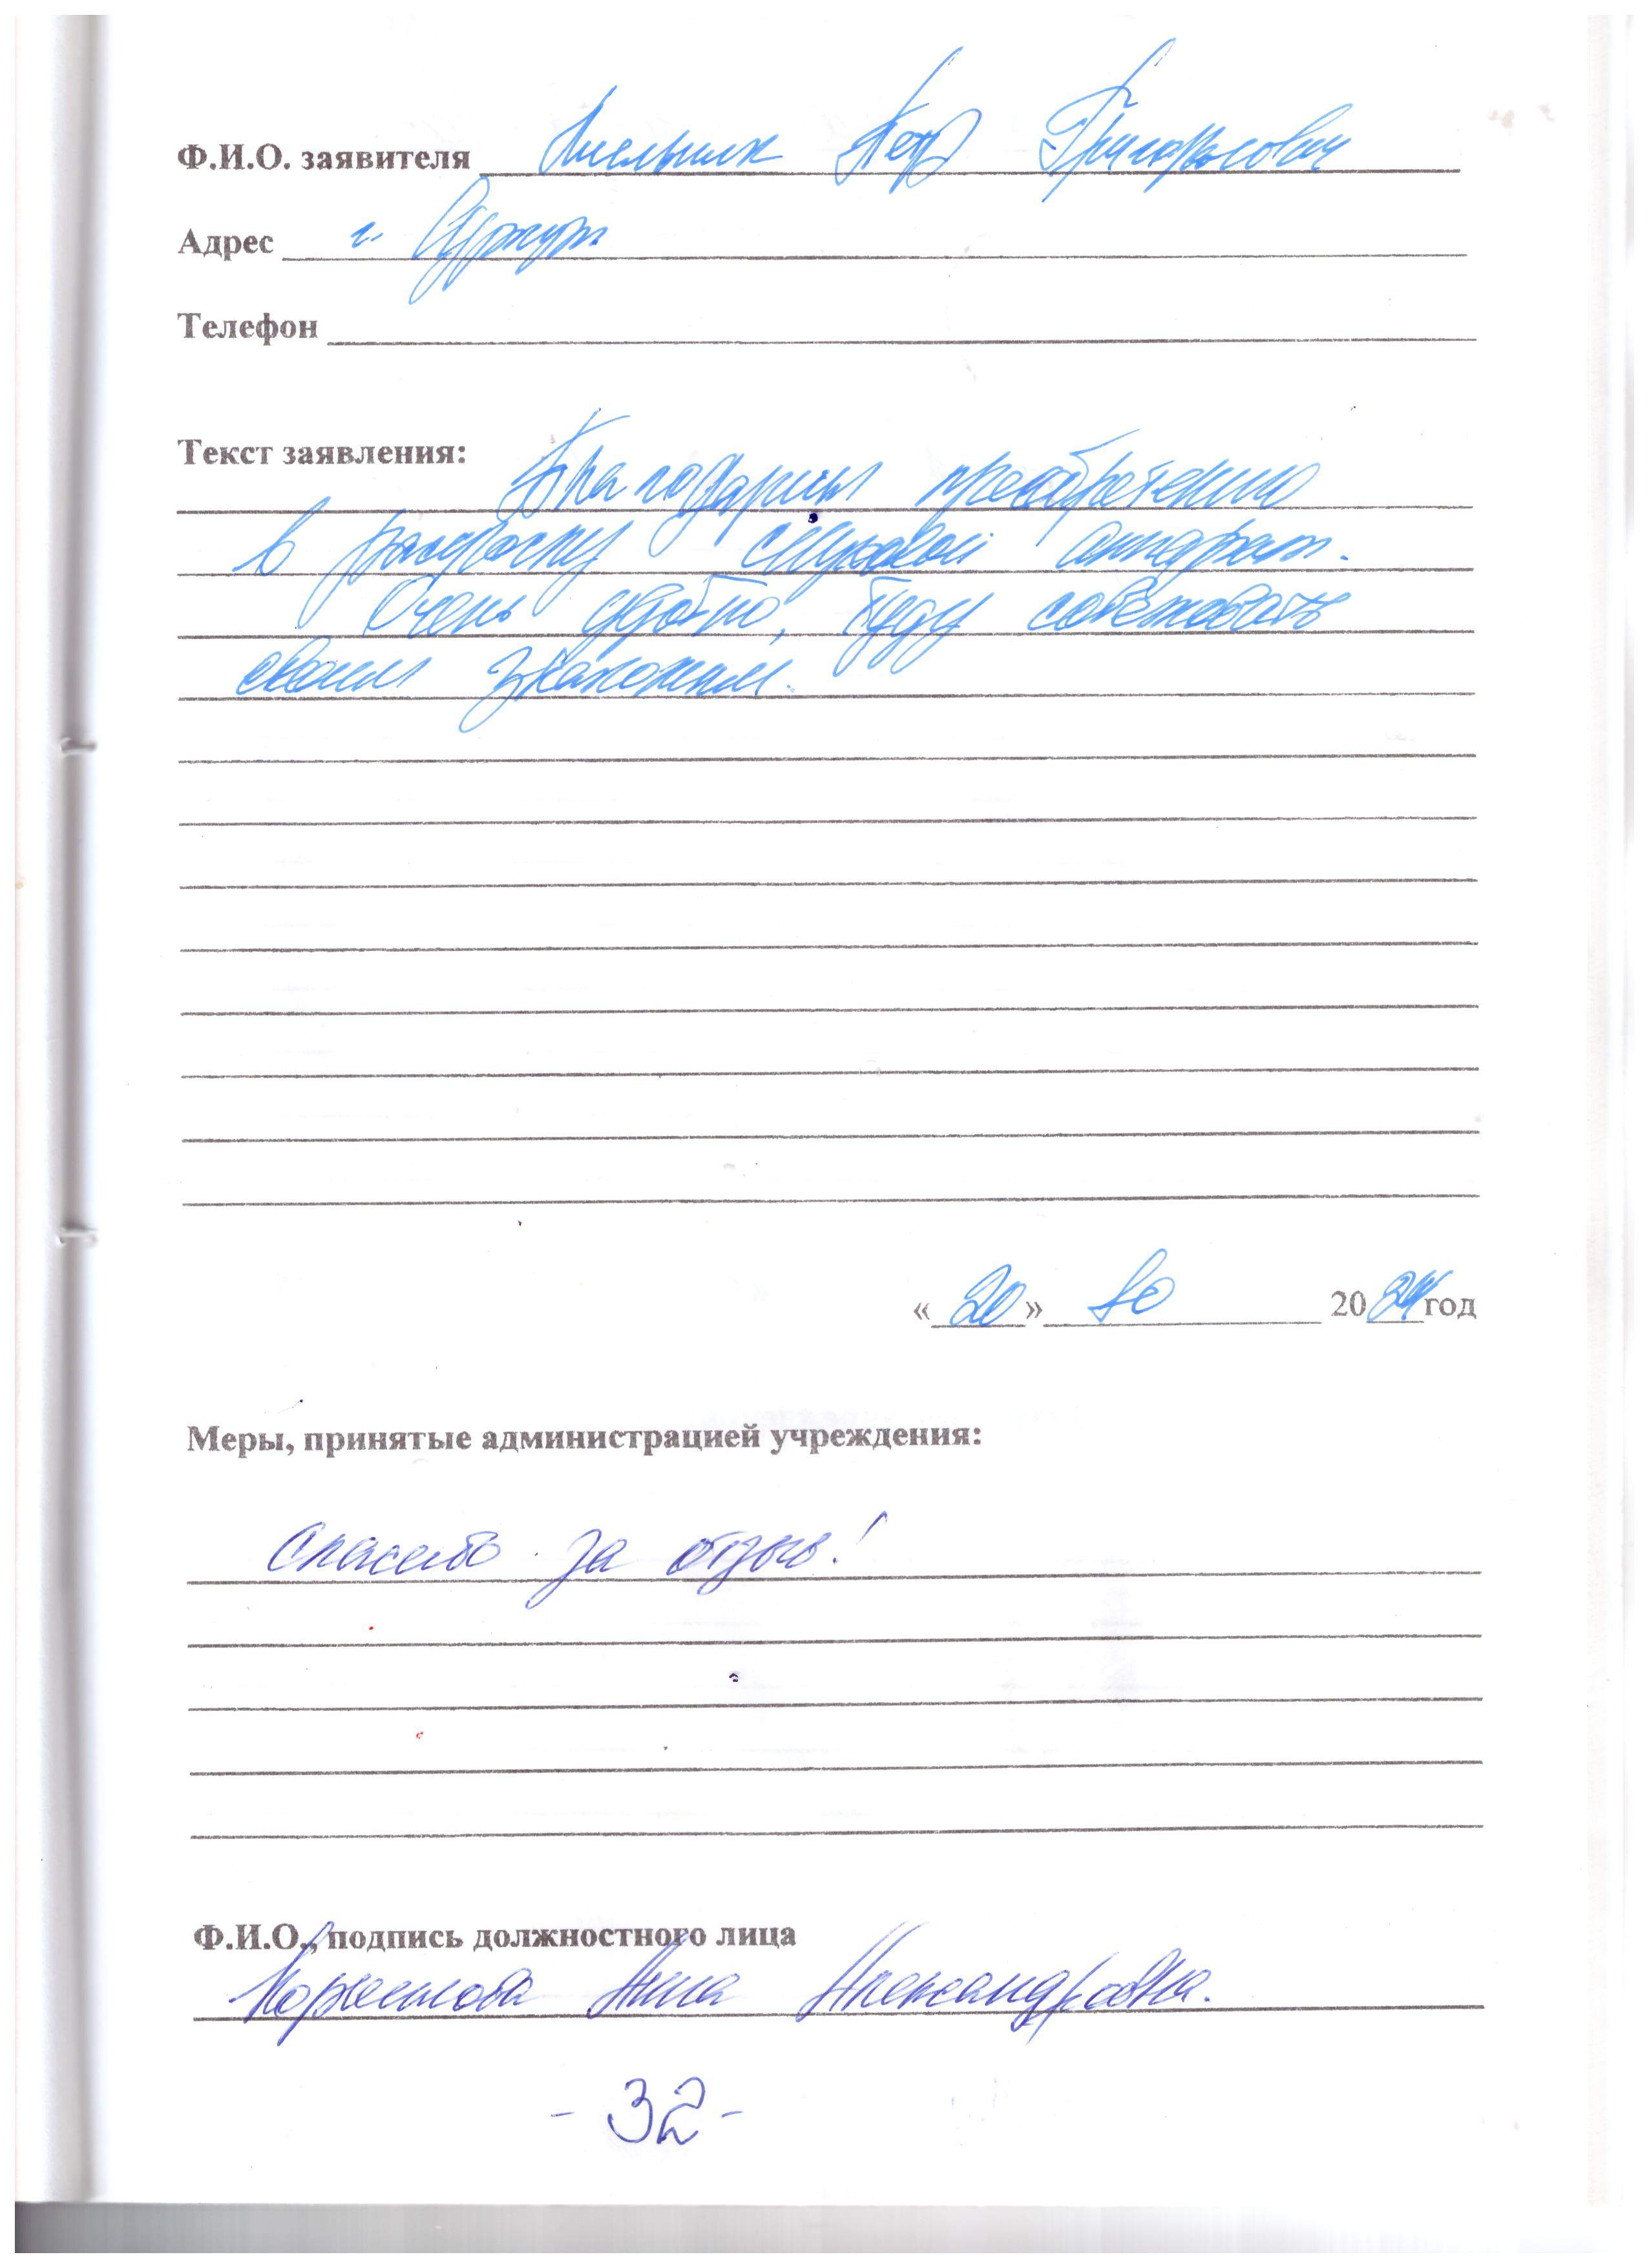 Ф.И.О. заявителя Мельник Петр Григорьевич
Адрес г. Сургут
Телефон
Текст заявления:
Благодарим преобретению
в рассрочку слуховой аппарат.
Очень удобно, буду советовать
своим знакомым.
«20» 10 2024 год
Меры, принятые администрацией учреждения:
Спасибо за отзыв!
Ф.И.О., подпись должностного лица
Анна Александровна.
- 32 -